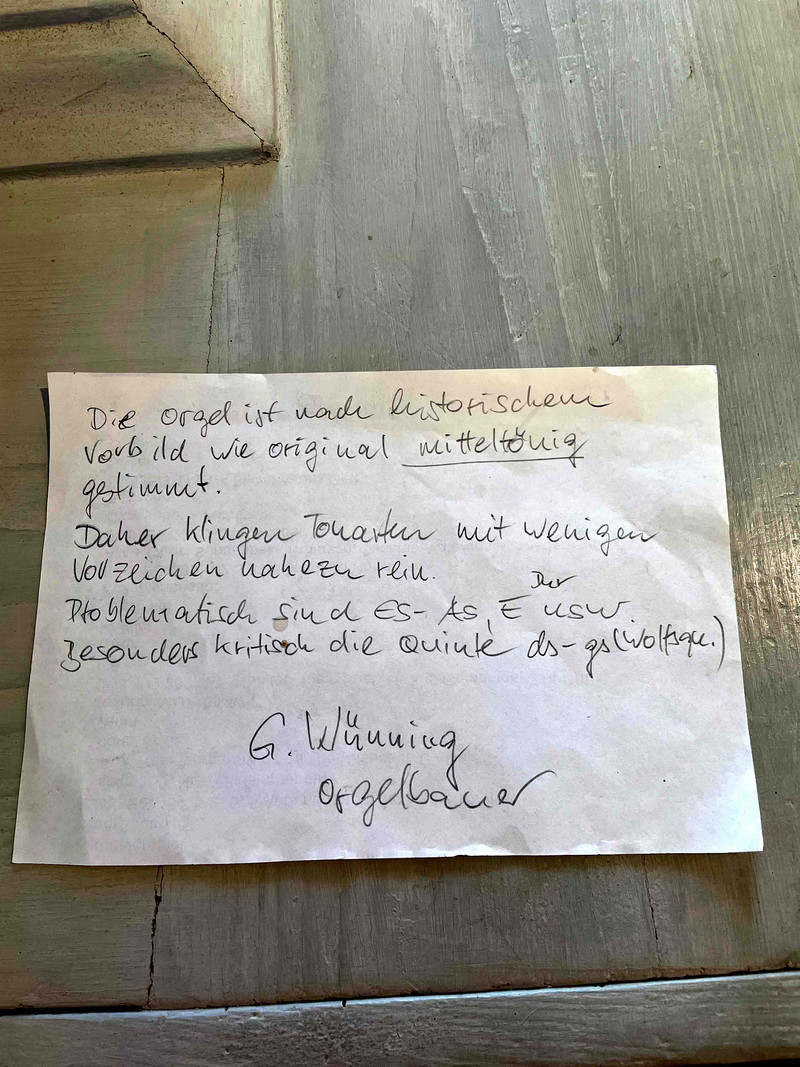 Die Orgel ist nach historischem
Vorbild wie original mitteltönig
gestimmt.
Daher klingen Tonarten mit wenigen
Vorzeichen nahezu rein.
Dur
Problematisch sind Es- As, E usw.
Besonders kritisch die Quinte ds-gs (Wolfsqu.)
G. Wünning
Orgelbauer